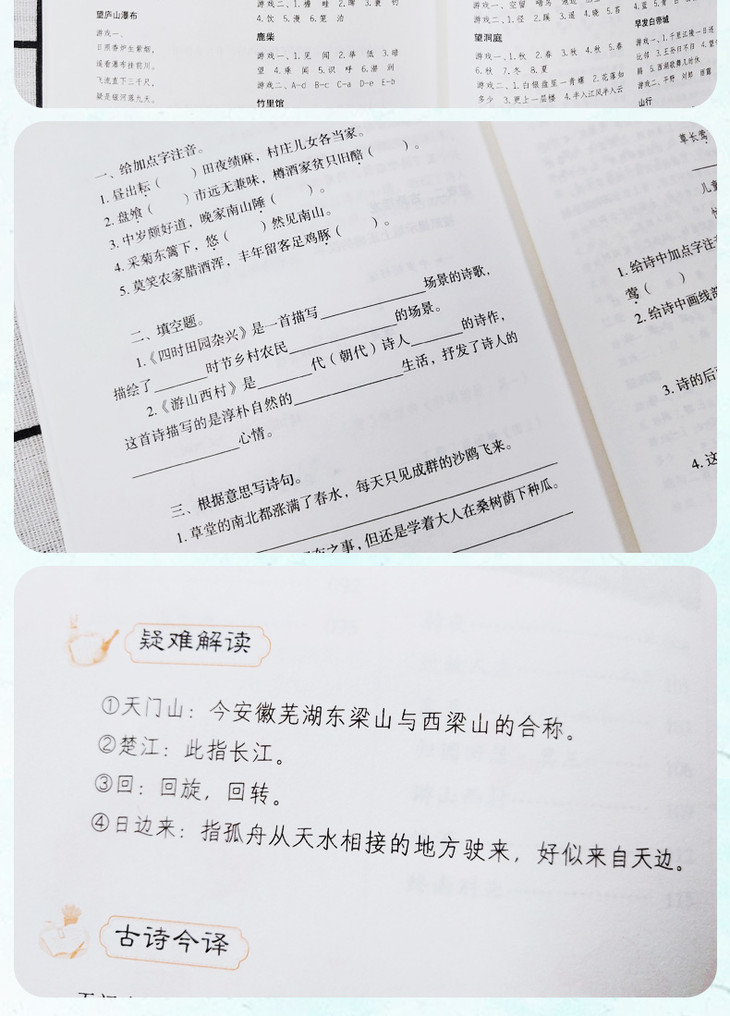 望庐山瀑布
游戏一、
日照香炉生紫烟，
遥看瀑布挂前川。
飞流直下三千尺，
疑是银河落九天。
4.饮 5.漫 6.笼 治
鹿柴
游戏一、1.见 闻 2.单 低 3.暗
望 4.乘 闻 5.识 呼 6.潜 润
游戏二、A-d B-c C-a D-e E-b
竹里馆
游戏二、1.径 2.蹊 3.遥 4.晓 5.苔
望洞庭
游戏一、1.秋 2.春 3.秋 4.秋 5.春
6.秋 7.冬 8.夏
游戏二、1.白银盘里一青螺 2.花落知
多少 3.更上一层楼 4.半入江风半入云
早发白帝城
游戏一、1.千里江陵一日还
山行
一、给加点字注音。
1.昼出耘（ ）田夜绩麻，村庄儿女各当家。
2.盘飧（ ）市远无兼味，樽酒家贫只旧醅（ ）。
3.中岁颇好道，晚家南山陲（ ）。
4.采菊东篱下，悠（ ）然见南山。
5.莫笑农家腊酒浑，丰年留客足鸡豚（ ）。
二、填空题。
1.《四时田园杂兴》是一首描写____场景的诗歌，
描绘了____时节乡村农民____的场景。
2.《游山西村》是____代（朝代）诗人____的诗作，
这首诗描写的是淳朴自然的____生活，抒发了诗人的
____心情。
三、根据意思写诗句。
1.草堂的南北都涨满了春水，每天只见成群的沙鸥飞来。
之事，但还是学着大人在桑树荫下种瓜。
草长莺
儿童
1.给诗中加点字注音
莺（ ）
2.给诗中画线部
3.诗的后
4.这
疑难解读
①天门山：今安徽芜湖东梁山与西梁山的合称。
②楚江：此指长江。
③回：回旋，回转。
④日边来：指孤舟从天水相接的地方驶来，好似来自天边。
古诗今译